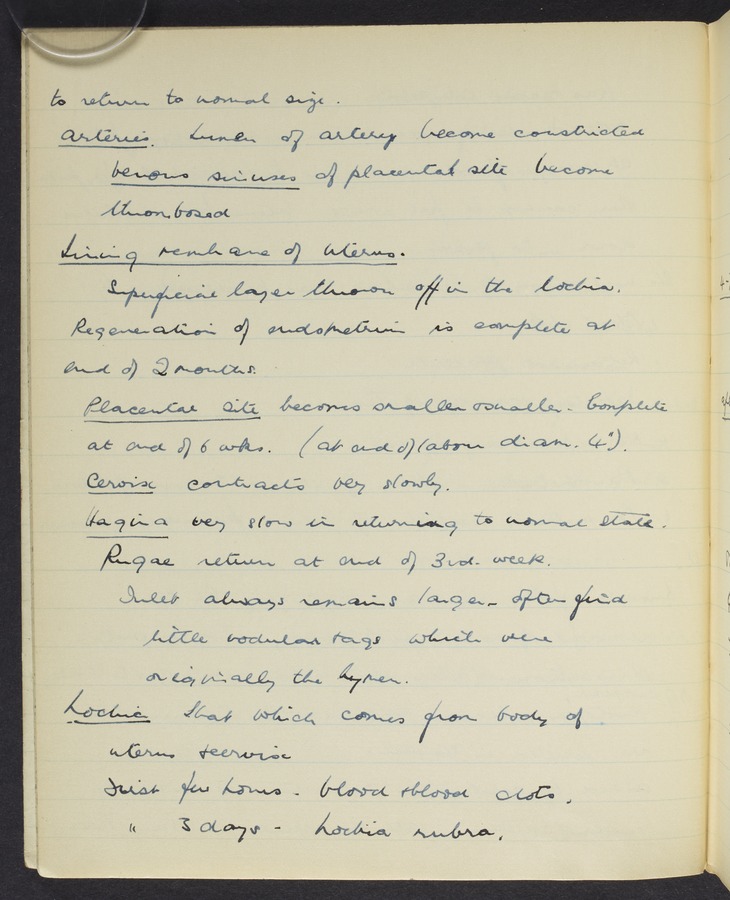 to return to normal size.
Arteries. Lumen of artery become constricted
venous sinuses of placental site become
thrombosed
Lining membrane of uterus.
Superficial layer thrown off in the lochia.
Regeneration of endometrium is complete at
end of 2 months.
Placental site becomes smaller & smaller. Complete
at end of 6 wks. (at end of labour diam. 4").
Cervix contracts very slowly.
Vagina very slow in returning to normal state.
Rugae return at end of 3rd. week.
Inlet always remains larger - often find
little nodular tags which were
originally the hymen.
Lochia That which comes from body of
uterus & cervix
First few hours - blood & blood clots.
" 3 days - Lochia rubra.